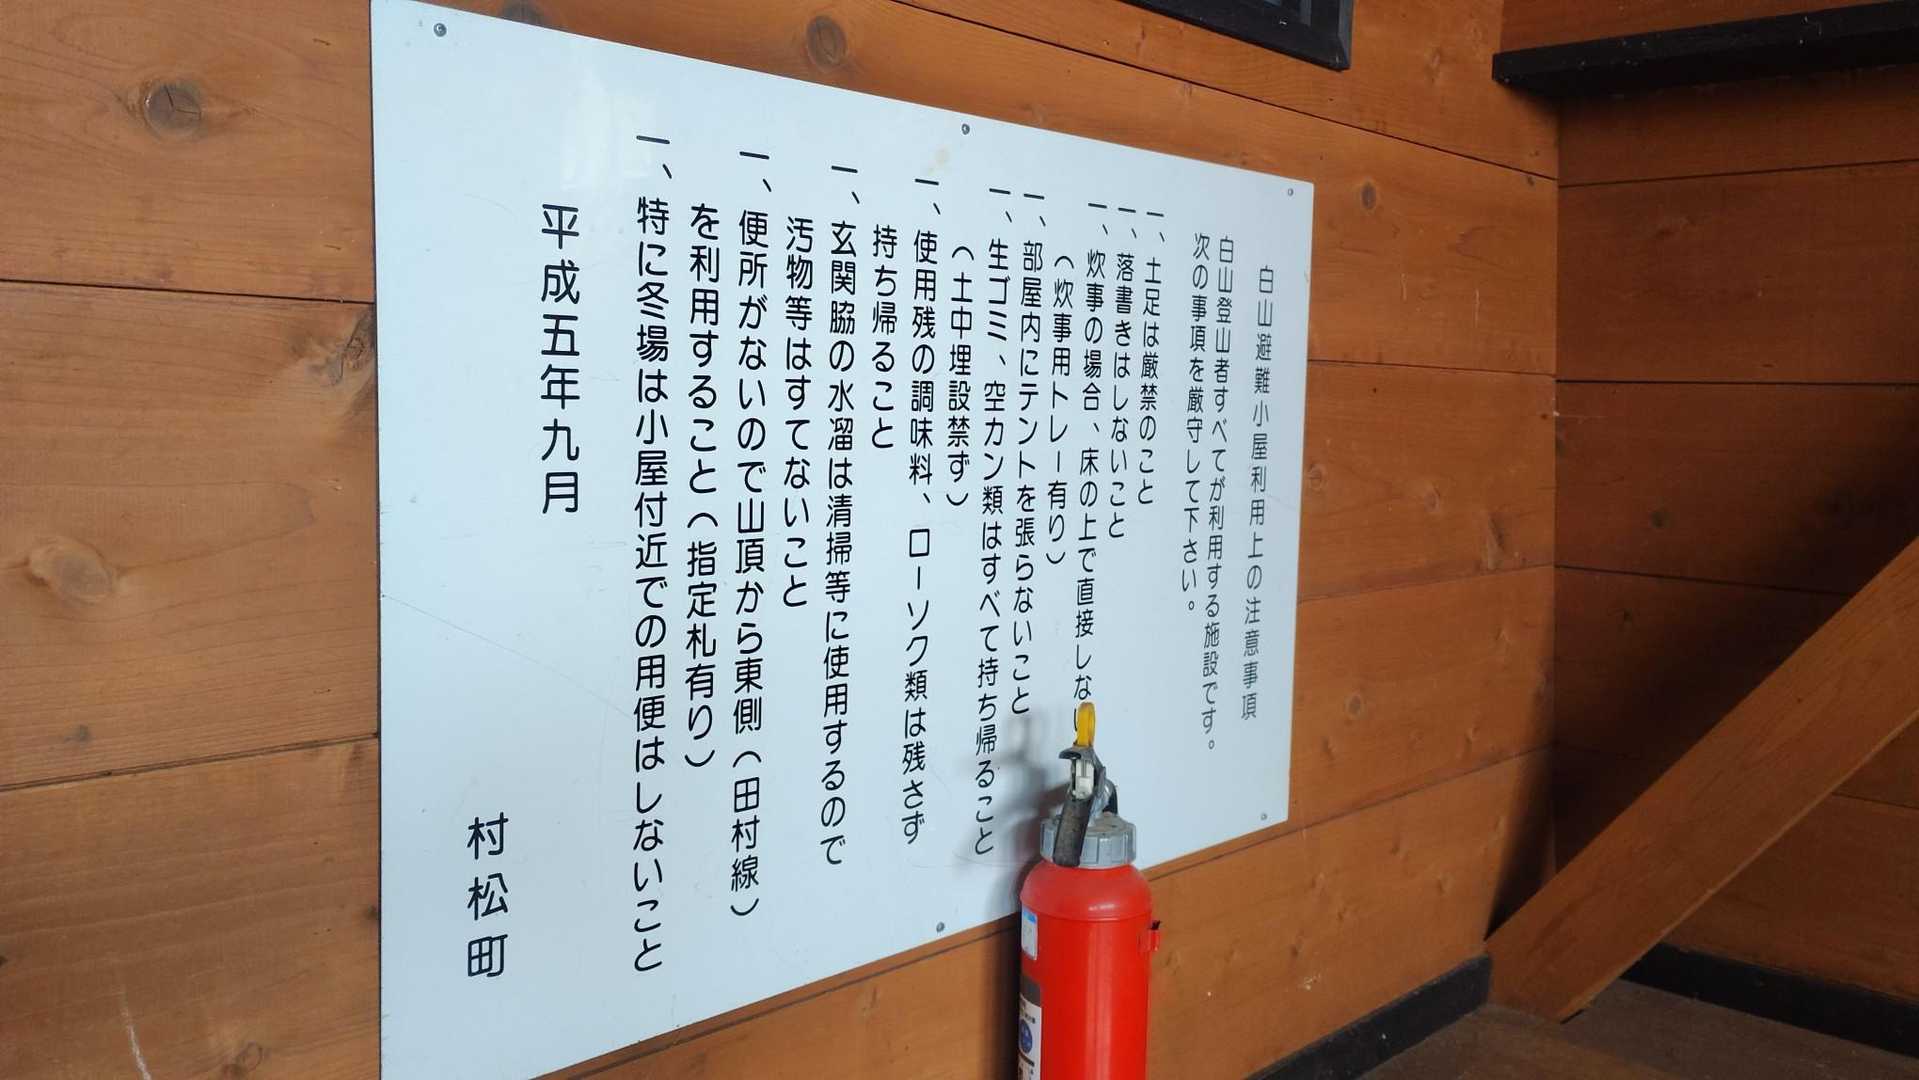 白山避難小屋利用上の注意事項
白山登山者すべてが利用する施設です。
次の事項を厳守して下さい。
一、土足は厳禁のこと
一、落書きはしないこと
一、炊事の場合、床の上で直接しな
（炊事用トレー有り）
一、部屋内にテントを張らないこと
一、生ゴミ、空カン類はすべて持ち帰ること
（土中埋設禁ず）
一、使用残の調味料、ローソク類は残さず
持ち帰ること
一、玄関脇の水溜は清掃等に使用するので
汚物等はすてないこと
一、便所がないので山頂から東側（田村線）
を利用すること（指定札有り）
一、特に冬場は小屋付近での用便はしないこと
平成五年九月
村松町